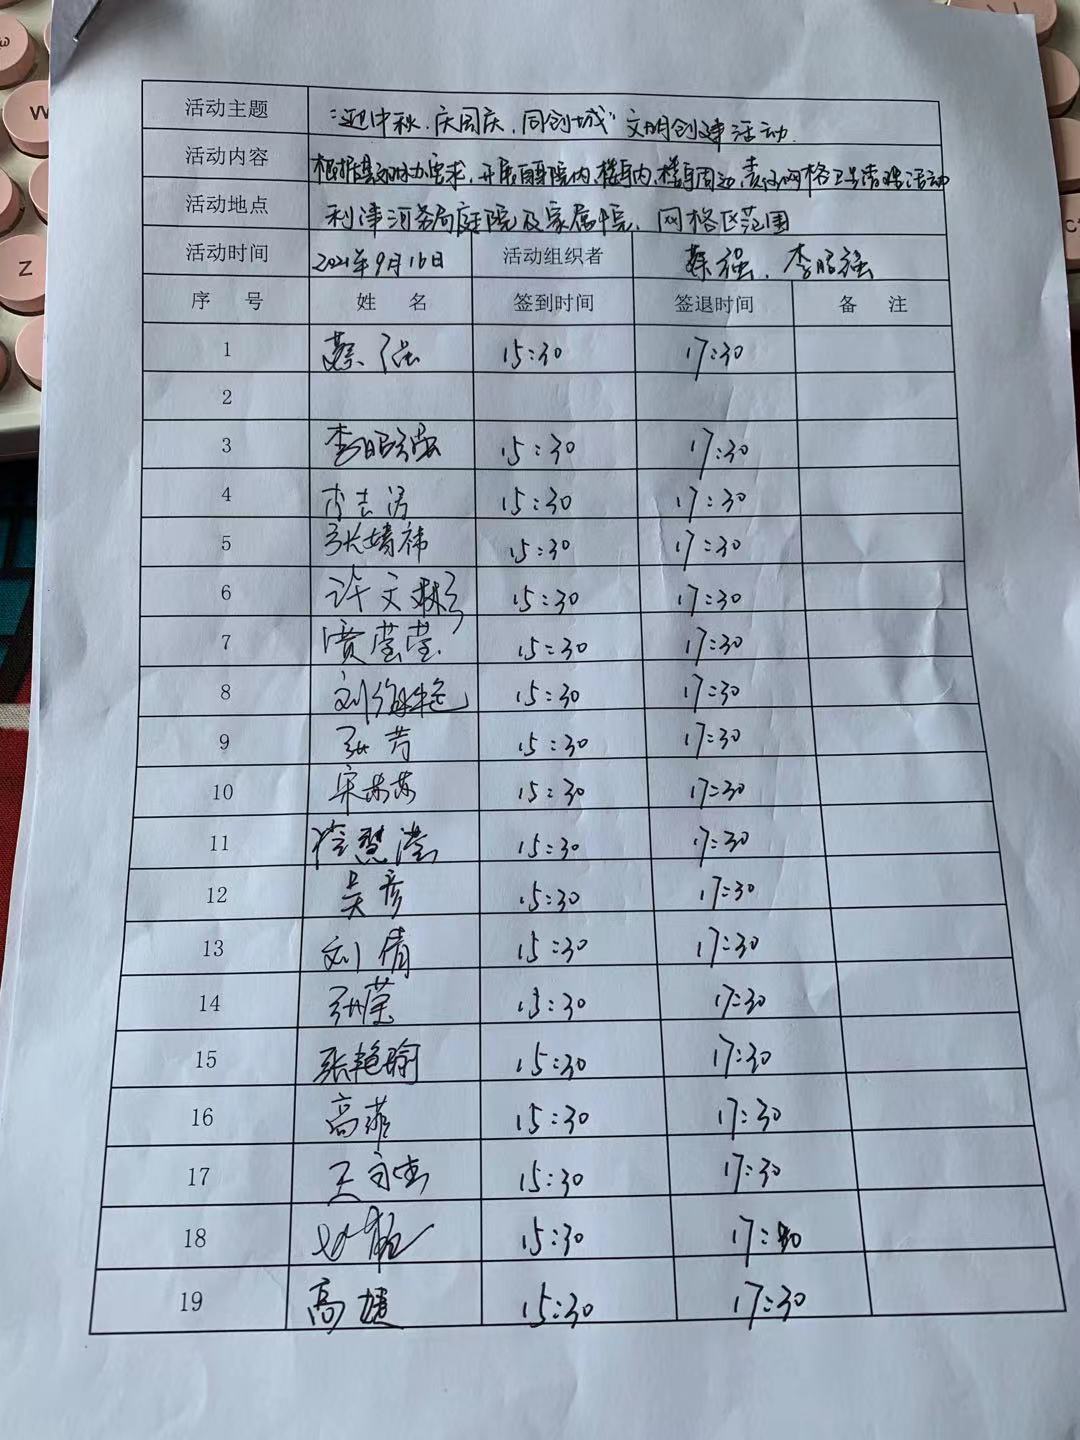 活动主题 "迎中秋.庆国庆.同创城"文明创建活动.
活动内容 根据县文明办要求,开展庭院内,楼宇内,楼宇周边,责任网格卫生清理活动
活动地点 利津河务局庭院及家属院、网格区范围
活动时间 2021年9月16日 活动组织者 蔡强、李昭强
序 号 姓 名 签到时间 签退时间 备 注
1 蔡强 15:30 17:30
2
3 李昭强 15:30 17:30
4 15:30 17:30
5 张婧祎 15:30 17:30
6 许文彬 15:30 17:30
7 贾莹莹 15:30 17:30
8 刘 15:30 17:30
9 张芳 15:30 17:30
10 宋苏苏 15:30 17:30
11 徐慧滢 15:30 17:30
12 吴彦 15:30 17:30
13 刘倩 15:30 17:30
14 张莹 15:30 17:30
15 张艳瑜 15:30 17:30
16 高菲 15:30 17:30
17 王 15:30 17:30
18 15:30 17:30
19 高婕 15:30 17:30
W
Z